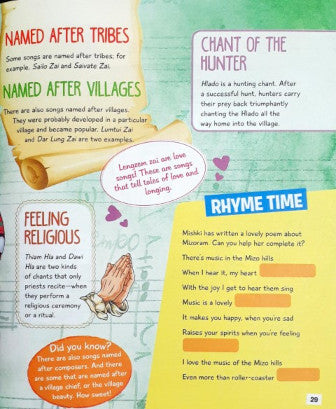 NAMED AFTER TRIBES
Some songs are named after tribes; for
example, Sailo Zai and Saivate Zai.
NAMED AFTER VILLAGES
There are also songs named after villages.
They were probably developed in a particular
village and became popular. Lumtui Zai
and Dar Lung Zai are two examples.
CHANT OF THE
HUNTER
Hlado is a hunting chant. After
a successful hunt, hunters carry
their prey back triumphantly
chanting the Hlado all the
way home into the village.
Lengzem zai are love
songs! These are songs
that tell tales of love and
longing.
FEELING
RELIGIOUS
Thiam Hla and Dawi
Hla are two kinds
of chants that only
priests recite—when
they perform a
religious ceremony
or a ritual.
Did you know?
There are also songs named
after composers. And there
are some that are named after
a village chief, or the village
beauty. How sweet!
RHYME TIME
Mishki has written a lovely poem about
Mizoram. Can you help her complete it?
There's music in the Mizo hills
When I hear it, my heart
With the joy I get to hear them sing
Music is a lovely
It makes you happy, when you're sad
Raises your spirits when you're feeling
I love the music of the Mizo hills
Even more than roller-coaster
29